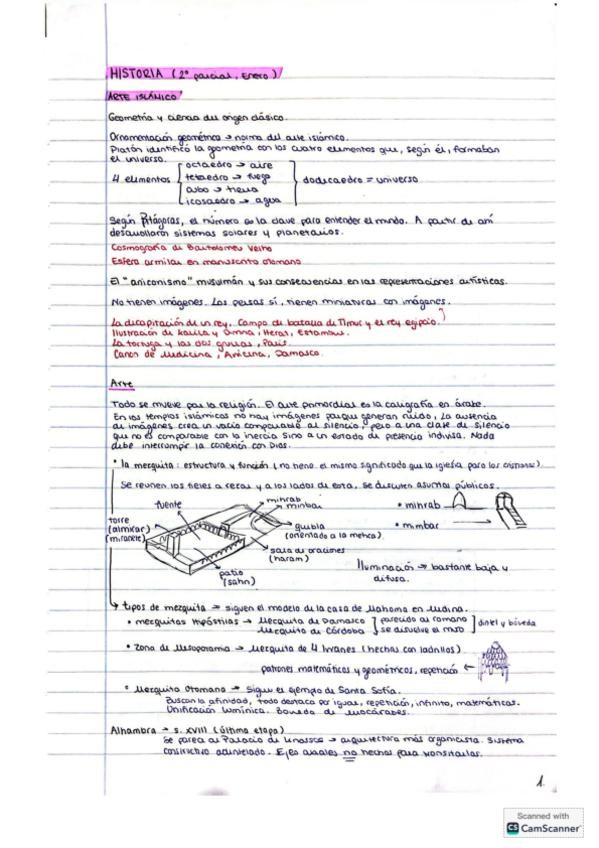 HISTORIA (2º parcial, Enero)
ARTE ISLÁMICO
Geometría y ciencia del origen clásico.
Ornamentación geométrica → norma del arte islámico.
Platón identificó la geometría con los cuatro elementos que, según él, formaban
el universo.
octaedro → aire
4 elementos tetraedro → fuego dodecaedro = universo
cubo → tierra
icosaedro → agua
Según Pitágoras, el número es la clave para entender el mundo. A partir de ahí
desarrollaron sistemas solares y planetarios.
Cosmografía de Bartolomeu Velho
Esfera armilar en manuscrito otomano
El "aniconismo" musulmán y sus consecuencias en las representaciones artísticas.
No tienen imágenes. Los persas sí, tienen miniaturas con imágenes.
La decapitación de un rey, Campo de batalla de Timur y el rey egipcio.
Ilustración de Kalila y Dimna, Herat, Estambul.
La tortuga y las dos grullas, París.
Canon de Medicina, Avicena, Damasco.
Arte
Todo se mueve por la religión. El arte primordial es la caligrafía en árabe.
En los templos islámicos no hay imágenes porque generan ruido, La ausencia
de imágenes crea un vacío comparable al silencio, pero a una clase de silencio
que no es comparable con la inercia sino a un estado de presencia indivisa. Nada
debe interrumpir la conexión con Dios.
• la mezquita: estructura y función (no tiene el mismo significado que la iglesia para los cristianos).
Se reúnen los fieles a rezar y a los lados de esta, se discuten asuntos públicos.
mihrab
minbar
fuente
• mihrab →
torre
(alminar)
(minarete)
quibla
(orientado a la meca)
• mimbar →
sala de oraciones
(haram)
patio
(sahn)
Iluminación → bastante baja y
difusa.
↳ tipos de mezquita → siguen el modelo de la casa de Mahoma en Medina.
• mezquitas Hipóstilas → Mezquita de Damasco parecido al romano dintel y bóveda
Mezquita de Córdoba se disuelve el muro
• Zona de Mesopotamia → Mezquita de 4 Iwanes (hechas con ladrillos)
patrones matemáticos y geométricos, repetición ←
• Mezquita Otomana → Sigue el ejemplo de Santa Sofía.
Buscan la afinidad, todo destaca por igual, repetición, infinito, matemáticas.
Unificación lumínica. Bóveda de mocárabes.
Alhambra → s. XVIII (última etapa)
Se parece al Palacio de → arquitectura más organicista. Sistema
constructivo adintelado. Ejes axiales no hechos para transitarlas.
1.
Scanned with
CS CamScanner